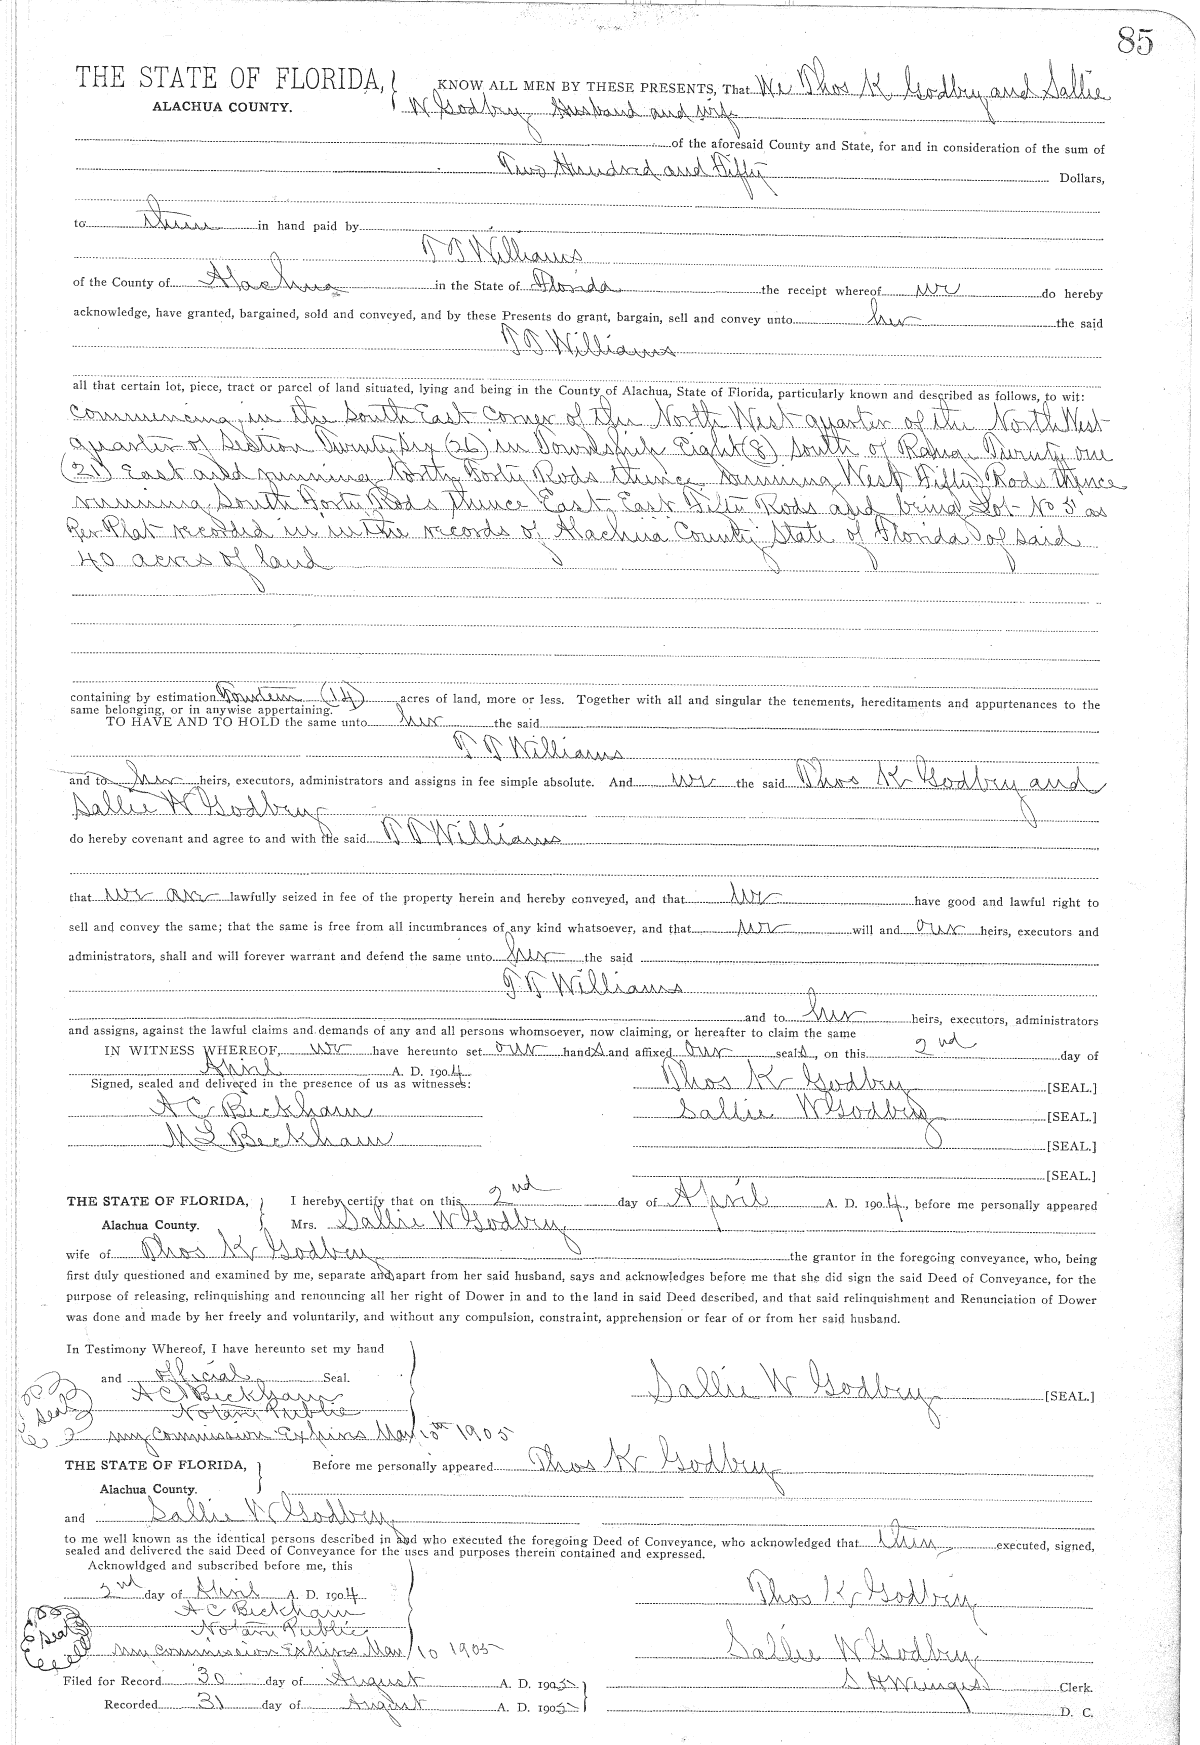 85
THE STATE OF FLORIDA, KNOW ALL MEN BY THESE PRESENTS, That We Thos K Godbry and Sallie
ALACHUA COUNTY. W Godbry Husband and wife
of the aforesaid County and State, for and in consideration of the sum of
Two Hundred and Fifty Dollars,
to them in hand paid by
T T Williams
of the County of Alachua in the State of Florida the receipt whereof we do hereby
acknowledge, have granted, bargained, sold and conveyed, and by these Presents do grant, bargain, sell and convey unto her the said
T T Williams
all that certain lot, piece, tract or parcel of land situated, lying and being in the County of Alachua, State of Florida, particularly known and described as follows, to wit:
Commencing in the South East Corner of the North West quarter of the North West
quarter of Section Twenty Six (26) in Township Eight (8) South of Range Twenty one
(21) East and running North Forty Rods thence running West Fifty Rods thence
running South Forty Rods thence East East Fifty Rods and being Lot No 5 as
Per Plat recorded in in the records of Alachua County State of Florida of said
40 acres of land
containing by estimation Fourteen (14) acres of land, more or less. Together with all and singular the tenements, hereditaments and appurtenances to the
same belonging, or in anywise appertaining.
TO HAVE AND TO HOLD the same unto her the said
T T Williams
and to her heirs, executors, administrators and assigns in fee simple absolute. And we the said Thos K Godbry and
Sallie W Godbry
do hereby covenant and agree to and with the said T T Williams
that we are lawfully seized in fee of the property herein and hereby conveyed, and that we have good and lawful right to
sell and convey the same; that the same is free from all incumbrances of any kind whatsoever, and that we will and our heirs, executors and
administrators, shall and will forever warrant and defend the same unto her the said
T T Williams
and to her heirs, executors, administrators
and assigns, against the lawful claims and demands of any and all persons whomsoever, now claiming, or hereafter to claim the same
IN WITNESS WHEREOF, we have hereunto set our hands and affixed our seals, on this 2nd day of
April A. D. 1904
Signed, sealed and delivered in the presence of us as witnesses: Thos K Godbry [SEAL.]
A C Beckham Sallie W Godbry [SEAL.]
M L Beckham [SEAL.]
[SEAL.]
THE STATE OF FLORIDA, I hereby certify that on this 2nd day of April A. D. 1904, before me personally appeared
Alachua County. Mrs. Sallie W Godbry
wife of Thos K Godbry the grantor in the foregoing conveyance, who, being
first duly questioned and examined by me, separate and apart from her said husband, says and acknowledges before me that she did sign the said Deed of Conveyance, for the
purpose of releasing, relinquishing and renouncing all her right of Dower in and to the land in said Deed described, and that said relinquishment and Renunciation of Dower
was done and made by her freely and voluntarily, and without any compulsion, constraint, apprehension or fear of or from her said husband.
In Testimony Whereof, I have hereunto set my hand
and official Seal. Sallie W Godbry [SEAL.]
A C Beckham
Seal Notary Public
My Commission Expires May 10th 1905
THE STATE OF FLORIDA, Before me personally appeared Thos K Godbry
Alachua County.
and Sallie W Godbry
to me well known as the identical persons described in and who executed the foregoing Deed of Conveyance, who acknowledged that them executed, signed,
sealed and delivered the said Deed of Conveyance for the uses and purposes therein contained and expressed.
Acknowldged and subscribed before me, this
2nd day of April A. D. 1904 Thos K Godbry
A C Beckham
Seal Notary Public
My Commission Expires May 10 1905 Sallie W Godbry
Filed for Record 30 day of August A. D. 1905 S H Wienges Clerk.
Recorded 31 day of August A. D. 1905 D. C.